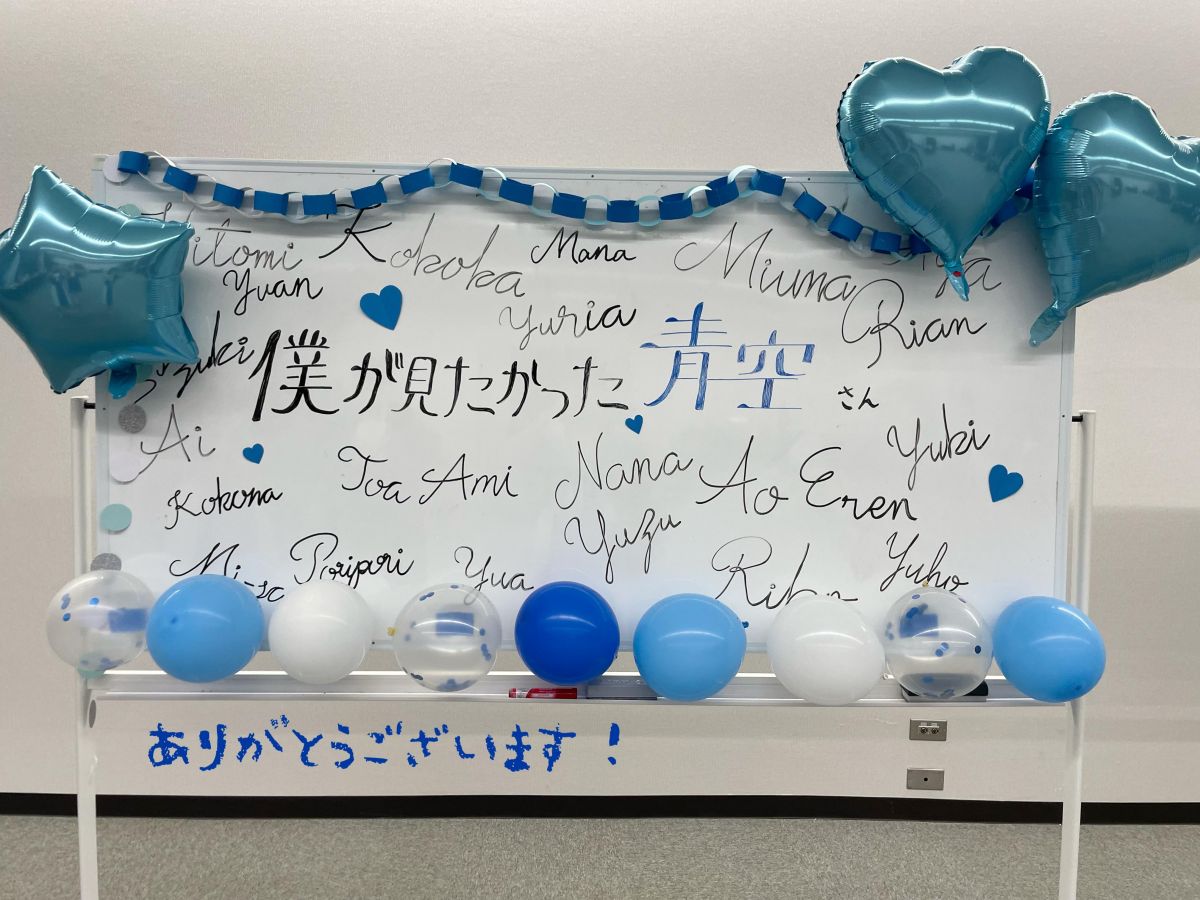 Kokoka Mana Miuma
Yuan Yuria Rian
僕が見たかった青空 さん
Ai Yuki
Kokona Toa Ami Nana Ao Eren
Yuzu
Poripori Yua Yuho
ありがとうございます！